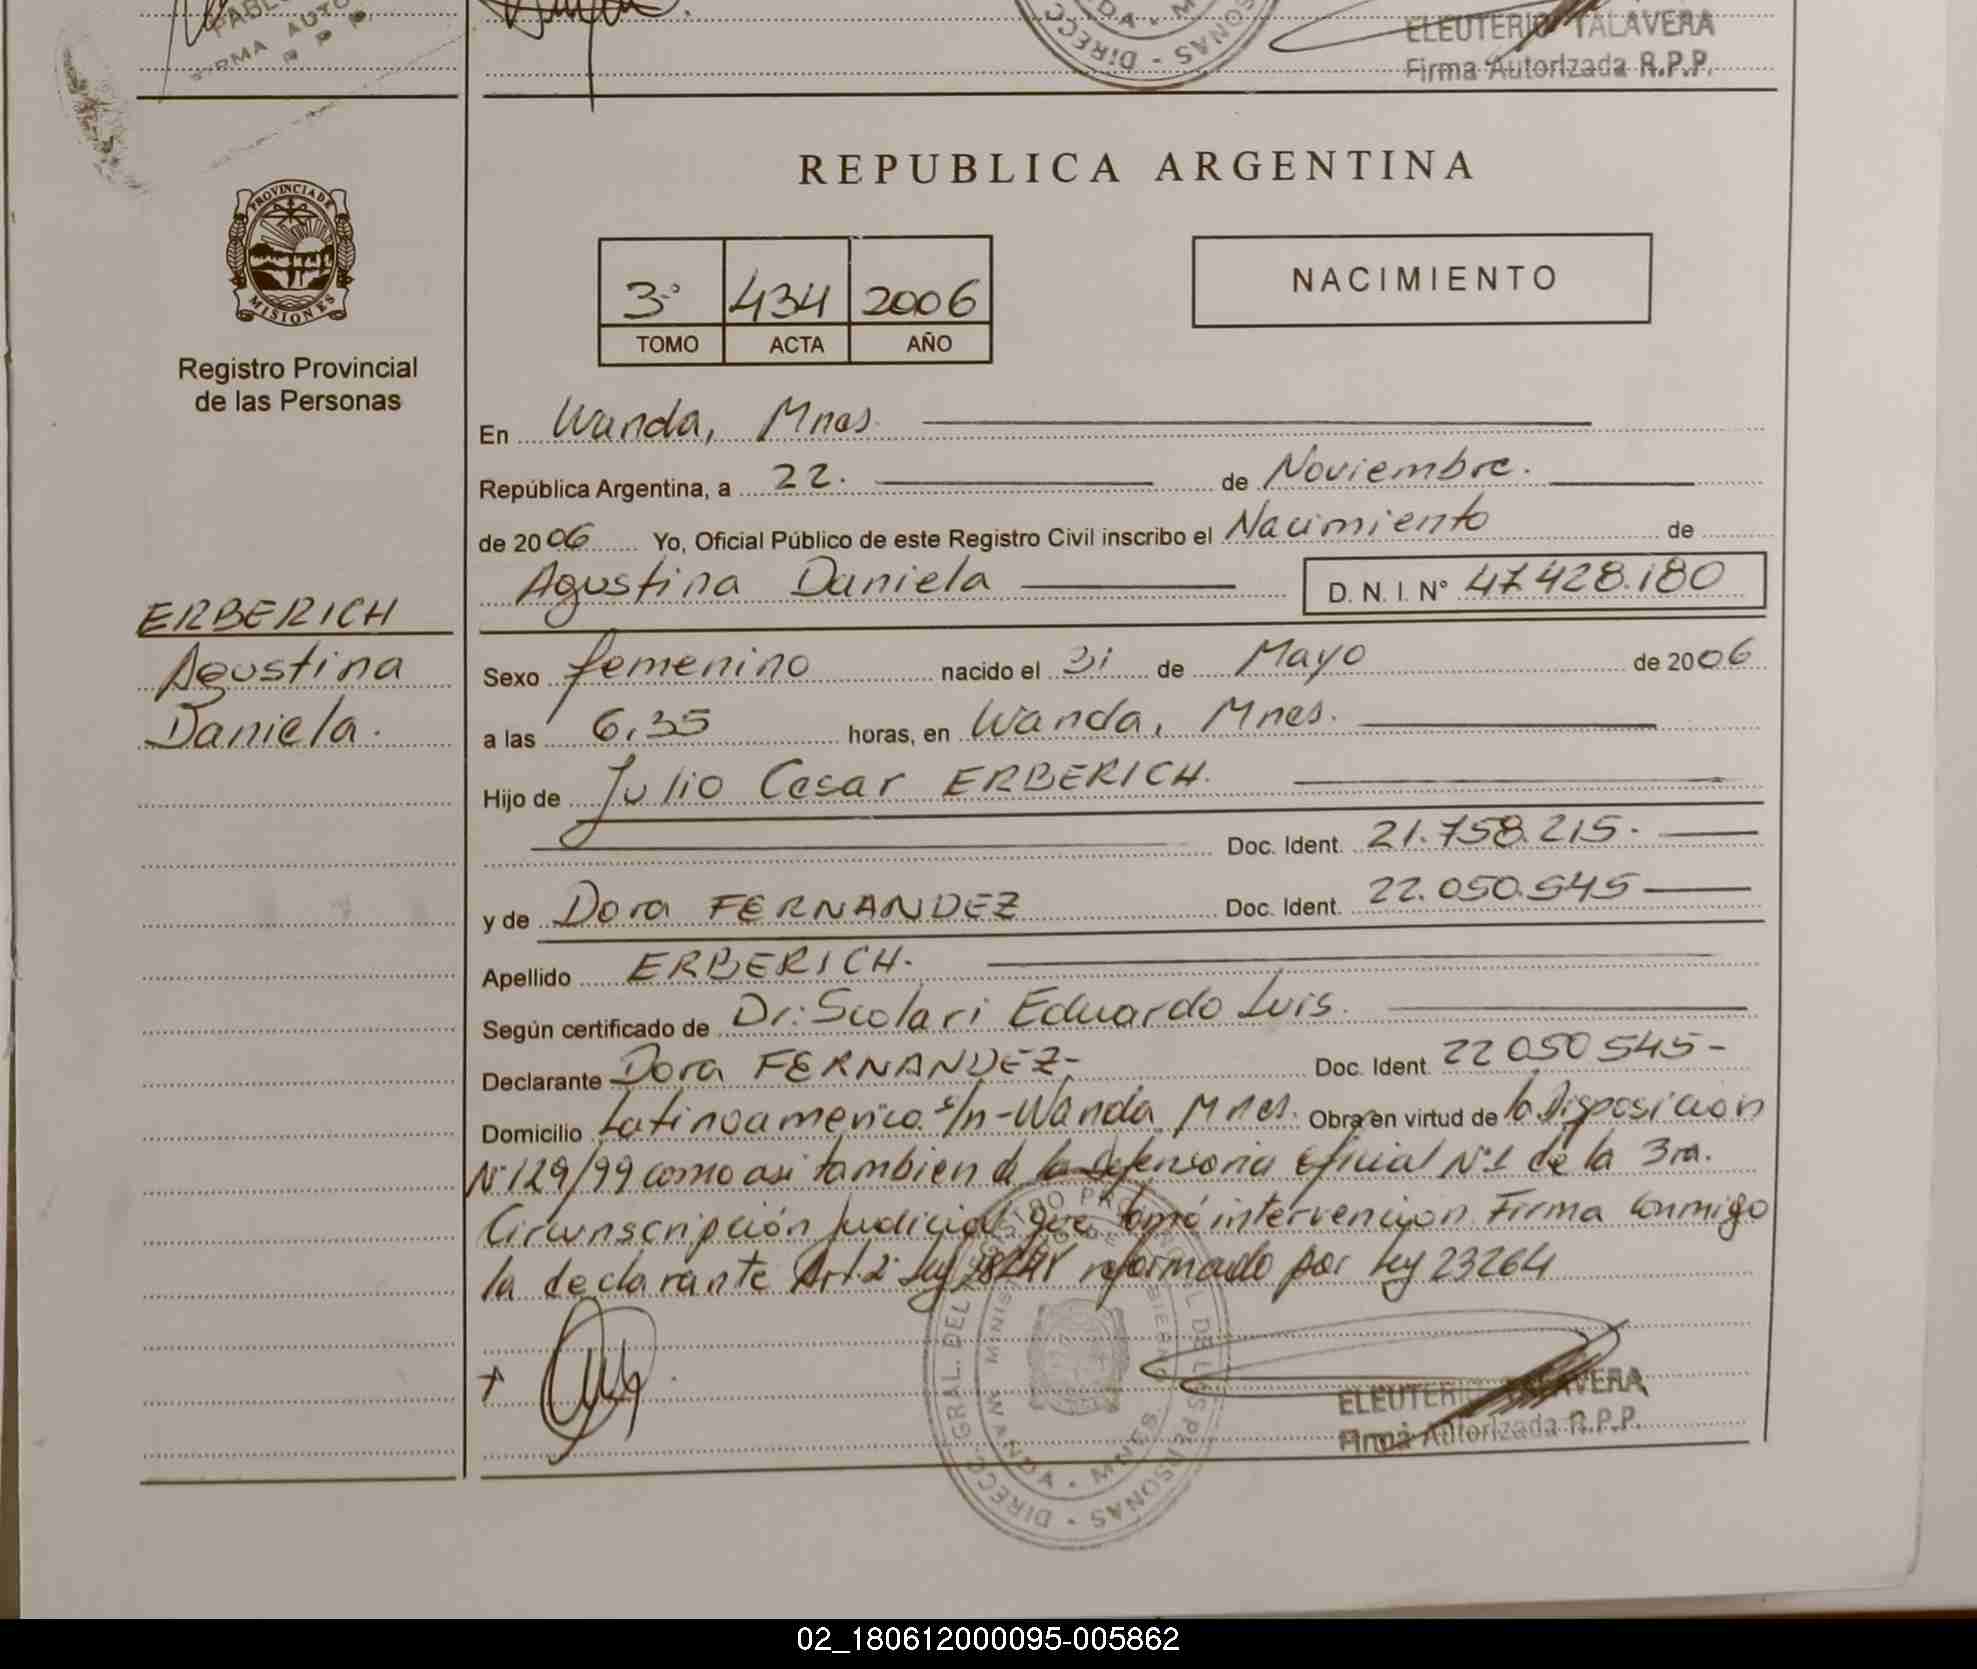 ELEUTERIO TALAVERA
Firma Autorizada R.P.P.
REPUBLICA ARGENTINA
PROVINCIA DE
MISIONES
Registro Provincial
de las Personas
3º 434 2006
TOMO ACTA AÑO
NACIMIENTO
ERBERICH
Agustina
Daniela.
En Wanda, Mnes.
República Argentina, a 22. de Noviembre.
de 2006 Yo, Oficial Público de este Registro Civil inscribo el Nacimiento de
Agustina Daniela D. N. I. Nº 47.428.180
Sexo femenino nacido el 31 de Mayo de 2006
a las 6,35 horas, en Wanda, Mnes.
Hijo de Julio Cesar ERBERICH.
Doc. Ident. 21.758.215.
y de Dora FERNANDEZ Doc. Ident. 22.050.545
Apellido ERBERICH.
Según certificado de Dr: Scolari Eduardo Luis.
Declarante Dora FERNANDEZ- Doc. Ident. 22 050 545-
Domicilio Latinoamerica s/n-Wanda, Mnes. Obra en virtud de la Disposicion
Nº 129/99 como asi tambien de la defensoria oficial Nº1 de la 3ra.
Circunscripción Judicial que tomó intervencion. Firma conmigo
la declarante Art. 2º Ley reformado por Ley 23264
WANDA - MNES.
ELEUTERIO TALAVERA
Firma Autorizada R.P.P.
02_180612000095-005862